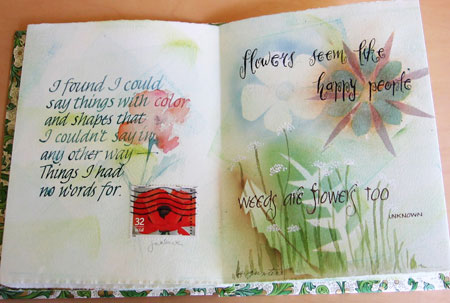 I found I could
say things with color
and shapes that
I couldn't say in
any other way—
Things I had
no words for.
32
flowers seem like
happy people
weeds are flowers too
UNKNOWN